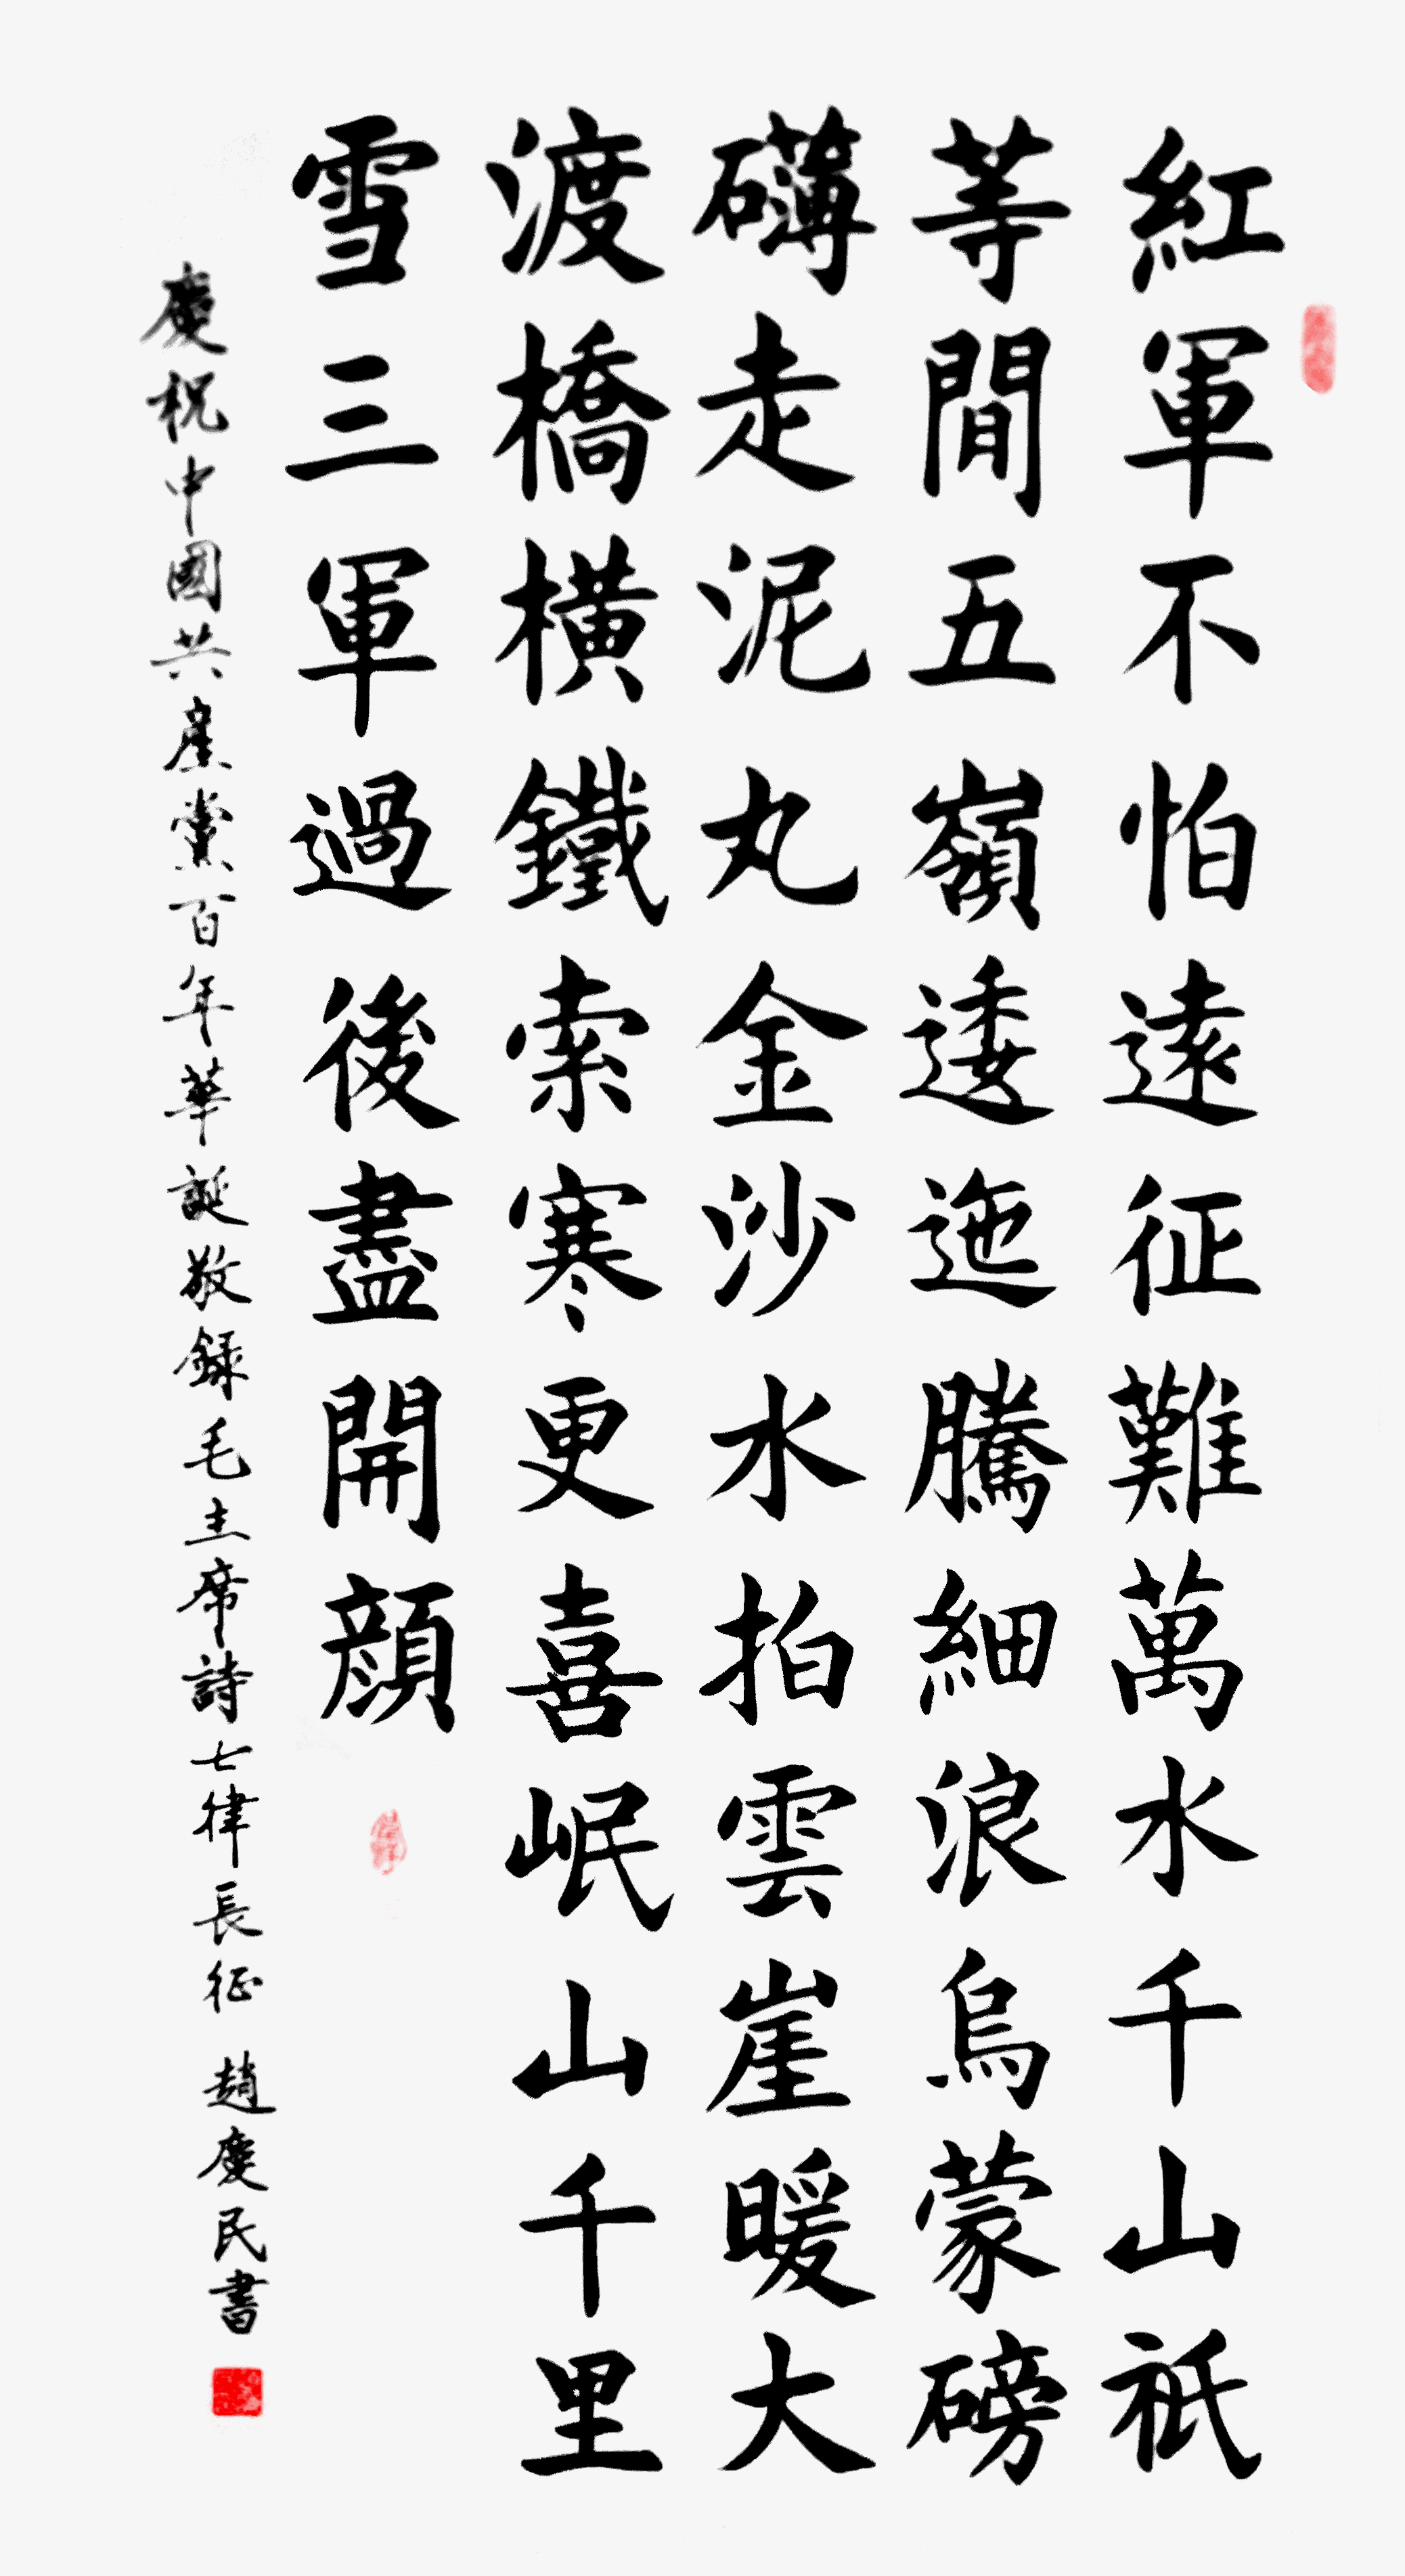 紅軍不怕遠征難萬水千山祗
等閒五嶺逶迤騰細浪烏蒙磅
礴走泥丸金沙水拍雲崖暖大
渡橋橫鐵索寒更喜岷山千里
雪三軍過後盡開顏
慶祝中國共產黨百年華誕敬錄毛主席詩七律長征 趙慶民書